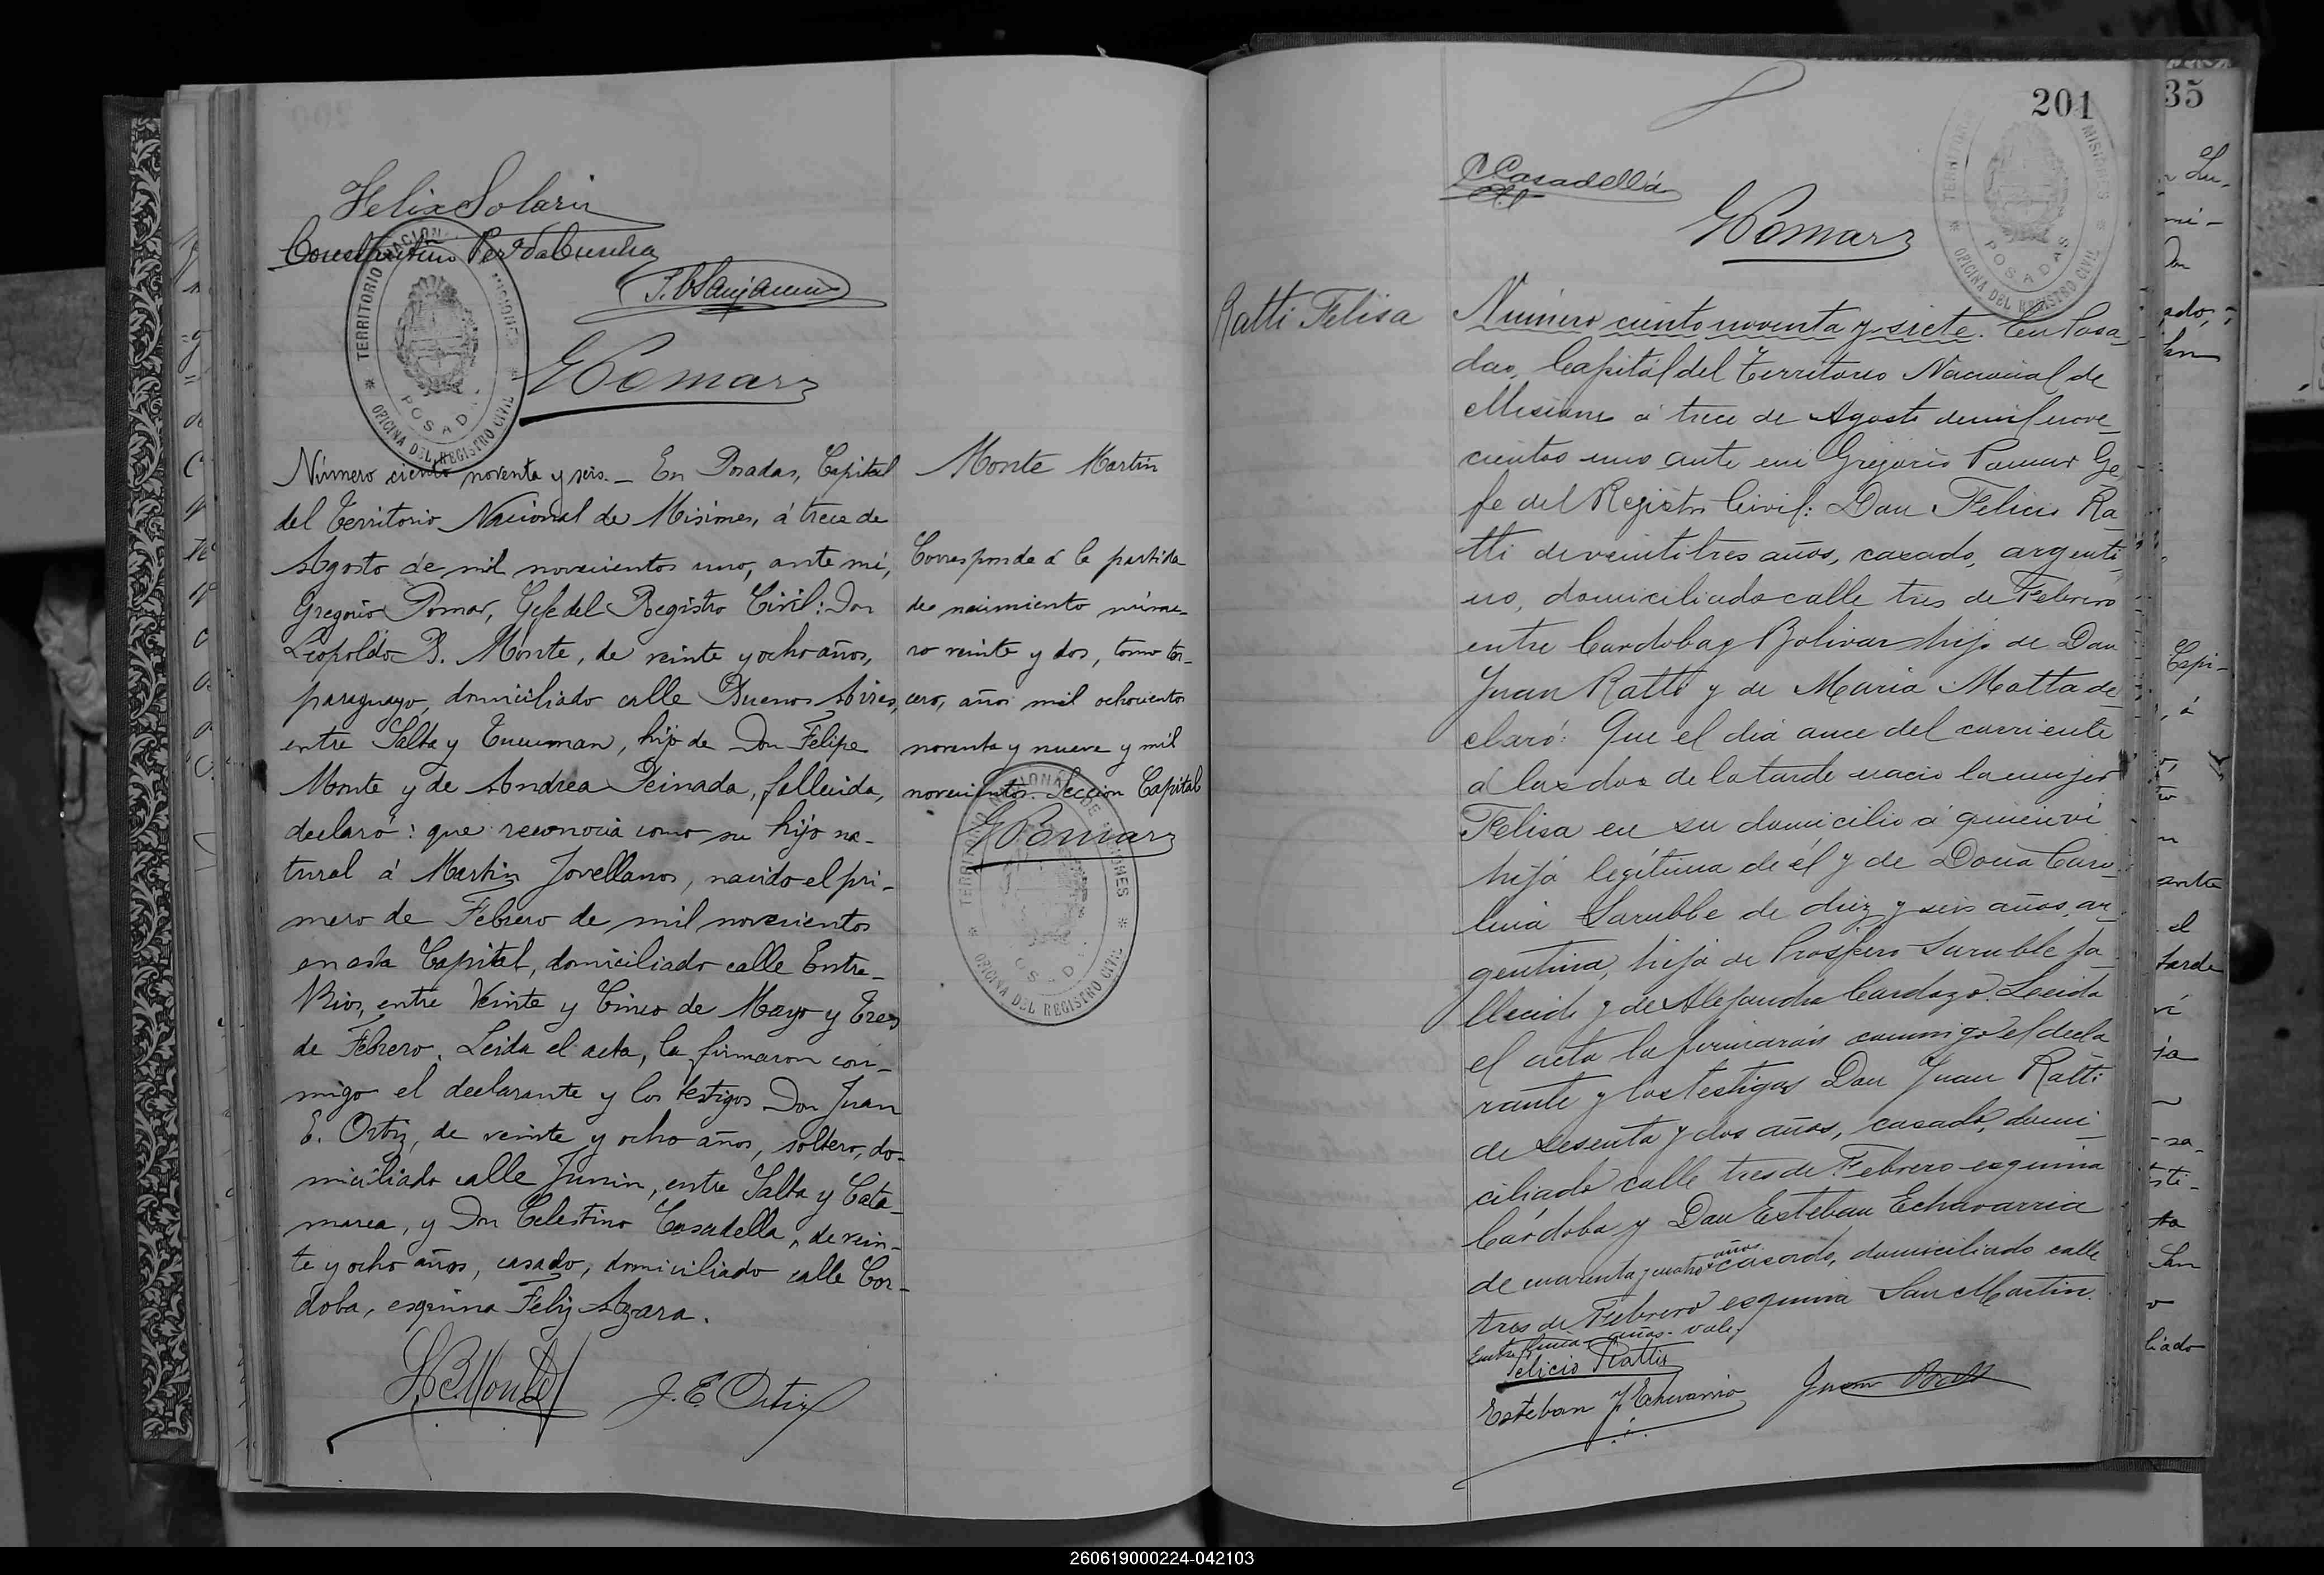 Felix Solari
Constantino Per da Cunha
G Pomar
TERRITORIO NACIONAL MISIONES
POSADAS
OFICINA DEL REGISTRO CIVIL
Número ciento noventa y seis. _ En Posadas, Capital
del Territorio Nacional de Misiones, á trece de
Agosto de mil novecientos uno, ante mi,
Gregorio Pomar, Gefe del Registro Civil: Don
Leopoldo B. Monte, de veinte y ocho años,
paraguayo, domiciliado calle Buenos Aires,
entre Salta y Tucuman, hijo de Don Felipe
Monte y de Andrea Peinada, fallecida,
declaró: que reconocia como su hijo na-
tural á Martin Jovellanos, nacido el pri-
mero de Febrero de mil novecientos
en esta Capital, domiciliado calle Entre-
Rios, entre Veinte y Cinco de Mayo y Tres
de Febrero. Leida el acta, la firmaron con-
migo el declarante y los testigos Don Juan
E. Ortiz, de veinte y ocho años, soltero, do-
miciliado calle Junin, entre Salta y Cata-
marca, y Don Celestino Casadella, de vein-
te y ocho años, casado, domiciliado calle Cor-
doba, esquina Feliz Azara.
L B Monte
J. E. Ortiz
Monte Martin
Corresponde á la partida
de nacimiento núme-
ro veinte y dos, tomo ter-
cero, años mil ochocientos
noventa y nueve y mil
novecientos. Seccion Capital
G Pomar
OFICINA DEL REGISTRO CIVIL
201
C Casadellá
G Pomar
TERRITORIO MISIONES
POSADAS
OFICINA DEL REGISTRO CIVIL
Ratti Felisa
Número ciento noventa y siete. En Posa-
das, Capital del Territorio Nacional de
Misiones á trece de Agosto de mil nove-
cientos uno ante mi Gregorio Pomar Ge-
fe del Registro Civil: Don Felicio Ra-
tti de veintitres años, casado, argenti-
no, domiciliado calle tres de Febrero
entre Cordoba y Bolivar hijo de Don
Juan Ratti y de Maria Motta de-
claró: Que el dia once del corriente
á las dos de la tarde nacio la mujer
Felisa en su domicilio á quien vi
hija legítima de él y de Doña Caro-
lina Saruble de diez y seis años, ar-
gentina, hija de Prospero Saruble fa-
llecido y de Alejandra Cardozo. Leida
el acta la firmarón conmigo el decla
rante y los testigos Don Juan Ratti
de sesenta y dos años, casado, domi-
ciliado calle tres de Febrero esquina
Córdoba y Don Esteban Echavarria
de cuarenta y cuatro años casado, domiciliado calle
tres de Febrero esquina San Martin.
Entre linea-años-vale.
Felicio Ratti
Esteban J. Echavarria
Juan Ratti
35
260619000224-042103